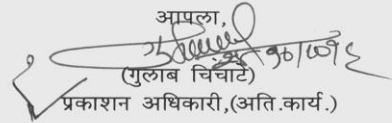 आपला,
(गुलाब चिचाटे)
प्रकाशन अधिकारी,(अति.कार्य.)